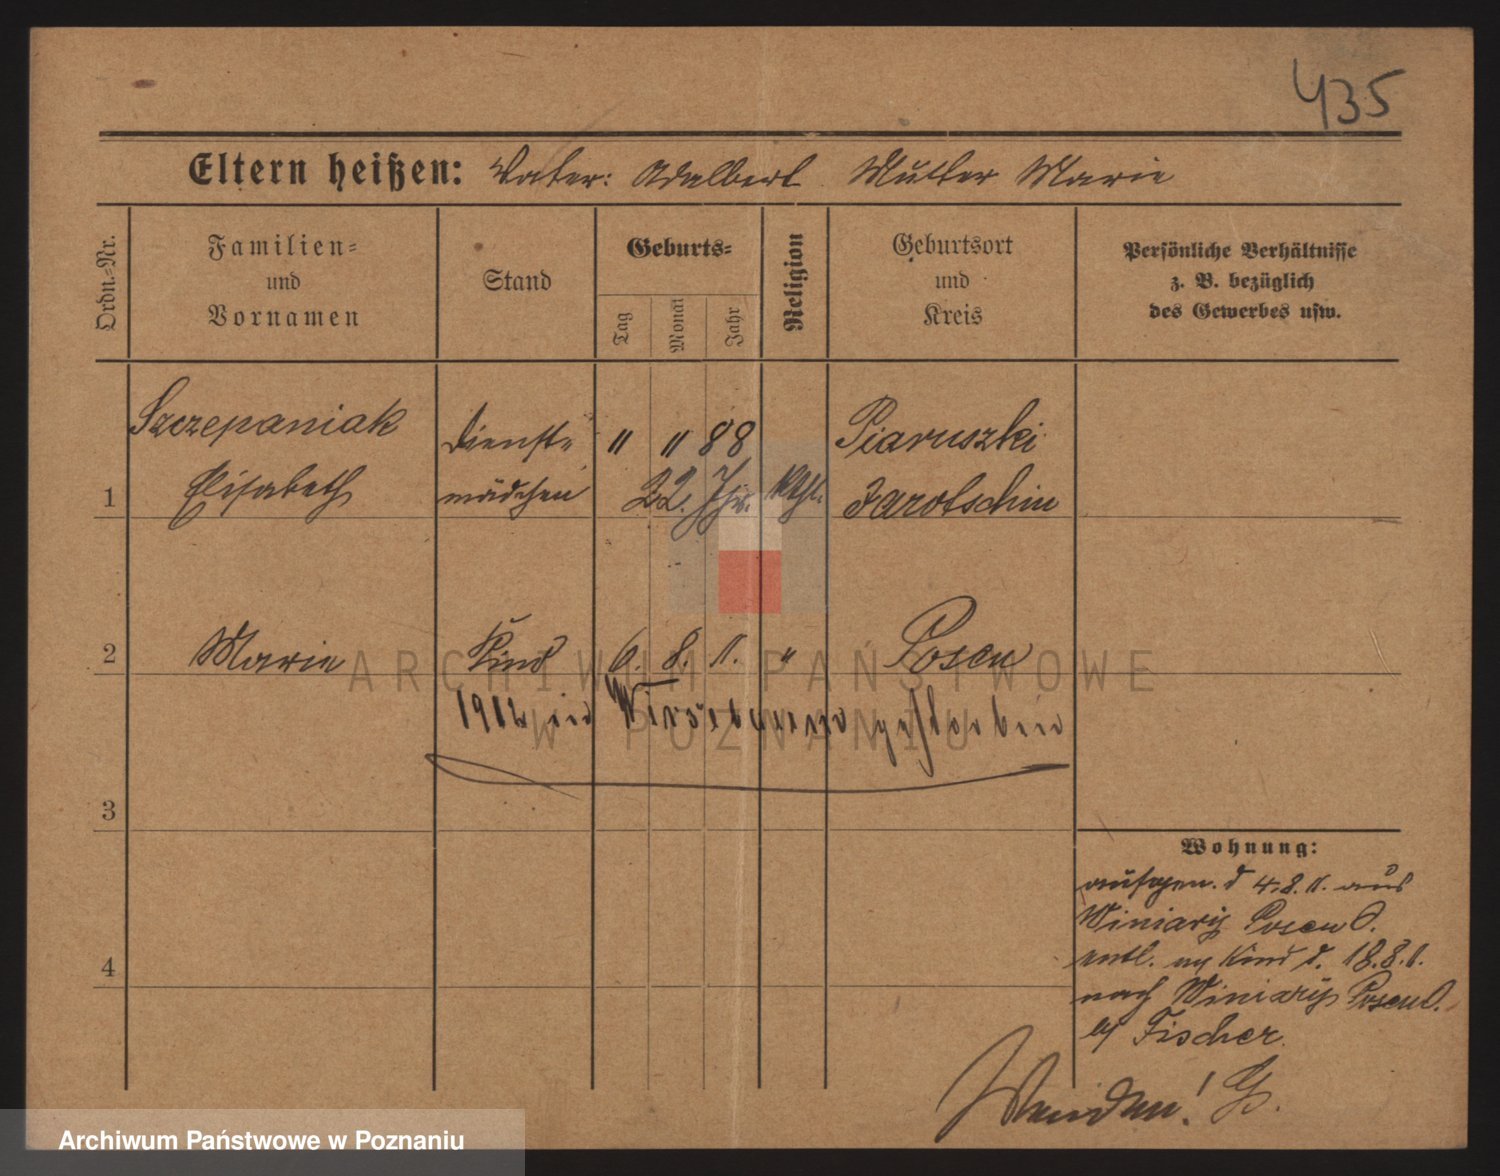 435
Eltern heißen: Vater: Adalbert Mutter Marie
Ordn.-Nr.
Familien-
und
Vornamen
Stand
Geburts-
Tag
Monat
Jahr
Religion
Geburtsort
und
Kreis
Persönliche Verhältnisse
z. B. bezüglich
des Gewerbes usw.
Szczepaniak Dienst- " " 88 Piaruszki
1 Elisabeth mädchen 22. Jhr. kthl. Jarotschin
2 Marie Kind 6. 8. 11. " Posen
1912 in gestorben
3
Wohnung:
aufgen. d 4.8.11. aus
Winiary Posen O.
entl. m Kind d. 18.8.11.
4
nach Winiary Posen O.
b/ Fischer.
Wenden! G.
ARCHIWUM PAŃSTWOWE
W POZNANIU
Archiwum Państwowe w Poznaniu